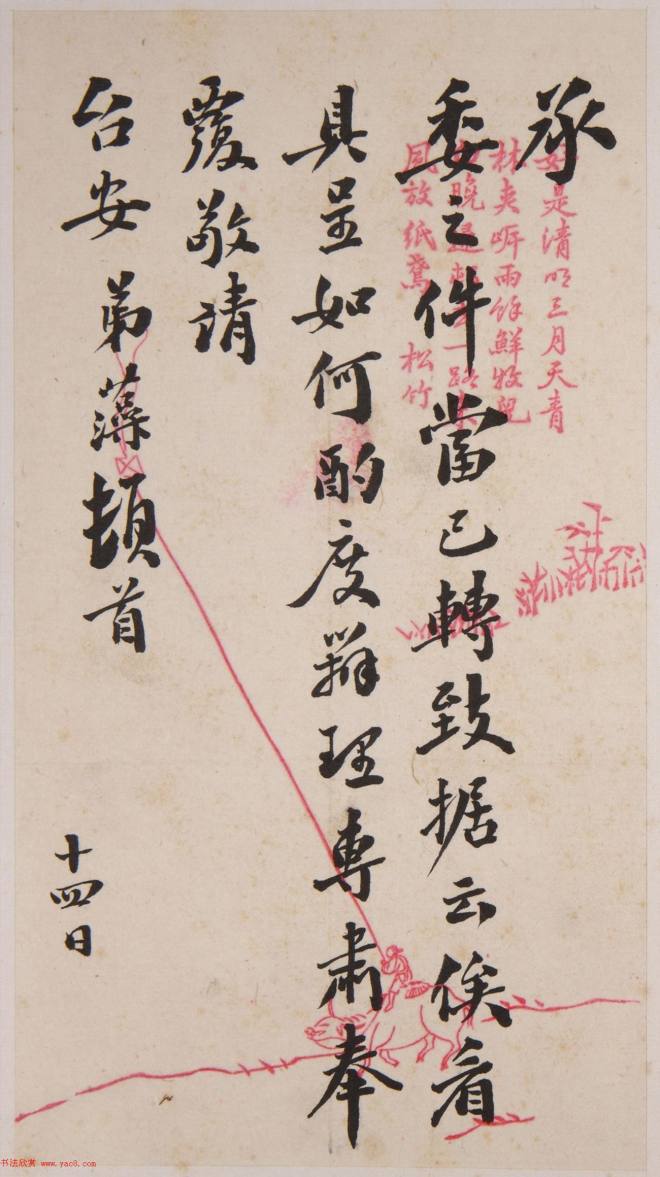 承
委之件當已轉致据云俟看
具呈如何酌度辦理專肅奉
覆敬請
台安 弟 頓首
十四日
是清明三月天青
林夾岸雨餘鮮牧兒
晚 一路
風放紙鳶 松竹
书法欣赏 www.yac8.com